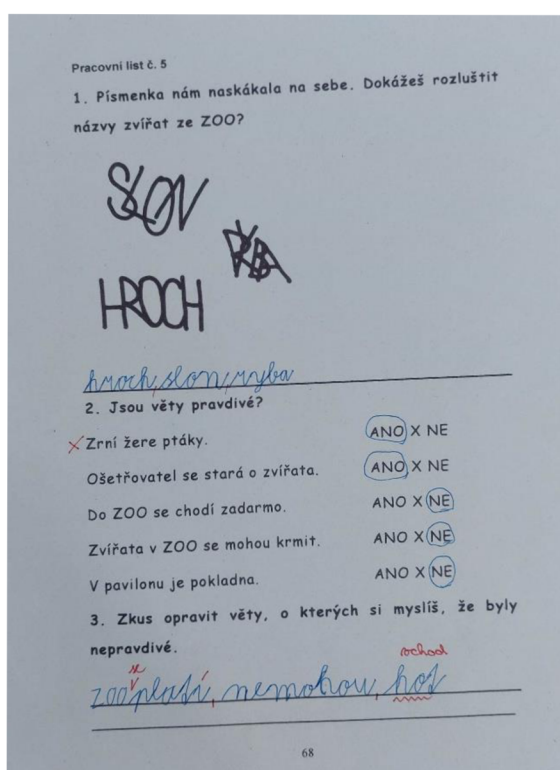 Pracovní list č. 5
1. Písmenka nám naskákala na sebe. Dokážeš rozluštit
názvy zvířat ze ZOO?
SLON
RYBA
HROCH
hroch, slon, ryba
2. Jsou věty pravdivé?
x Zrní žere ptáky. ANO X NE
Ošetřovatel se stará o zvířata. ANO X NE
Do ZOO se chodí zadarmo. ANO X NE
Zvířata v ZOO se mohou krmit. ANO X NE
V pavilonu je pokladna. ANO X NE
3. Zkus opravit věty, o kterých si myslíš, že byly
nepravdivé.
schod
zoo platí, nemohou,
68